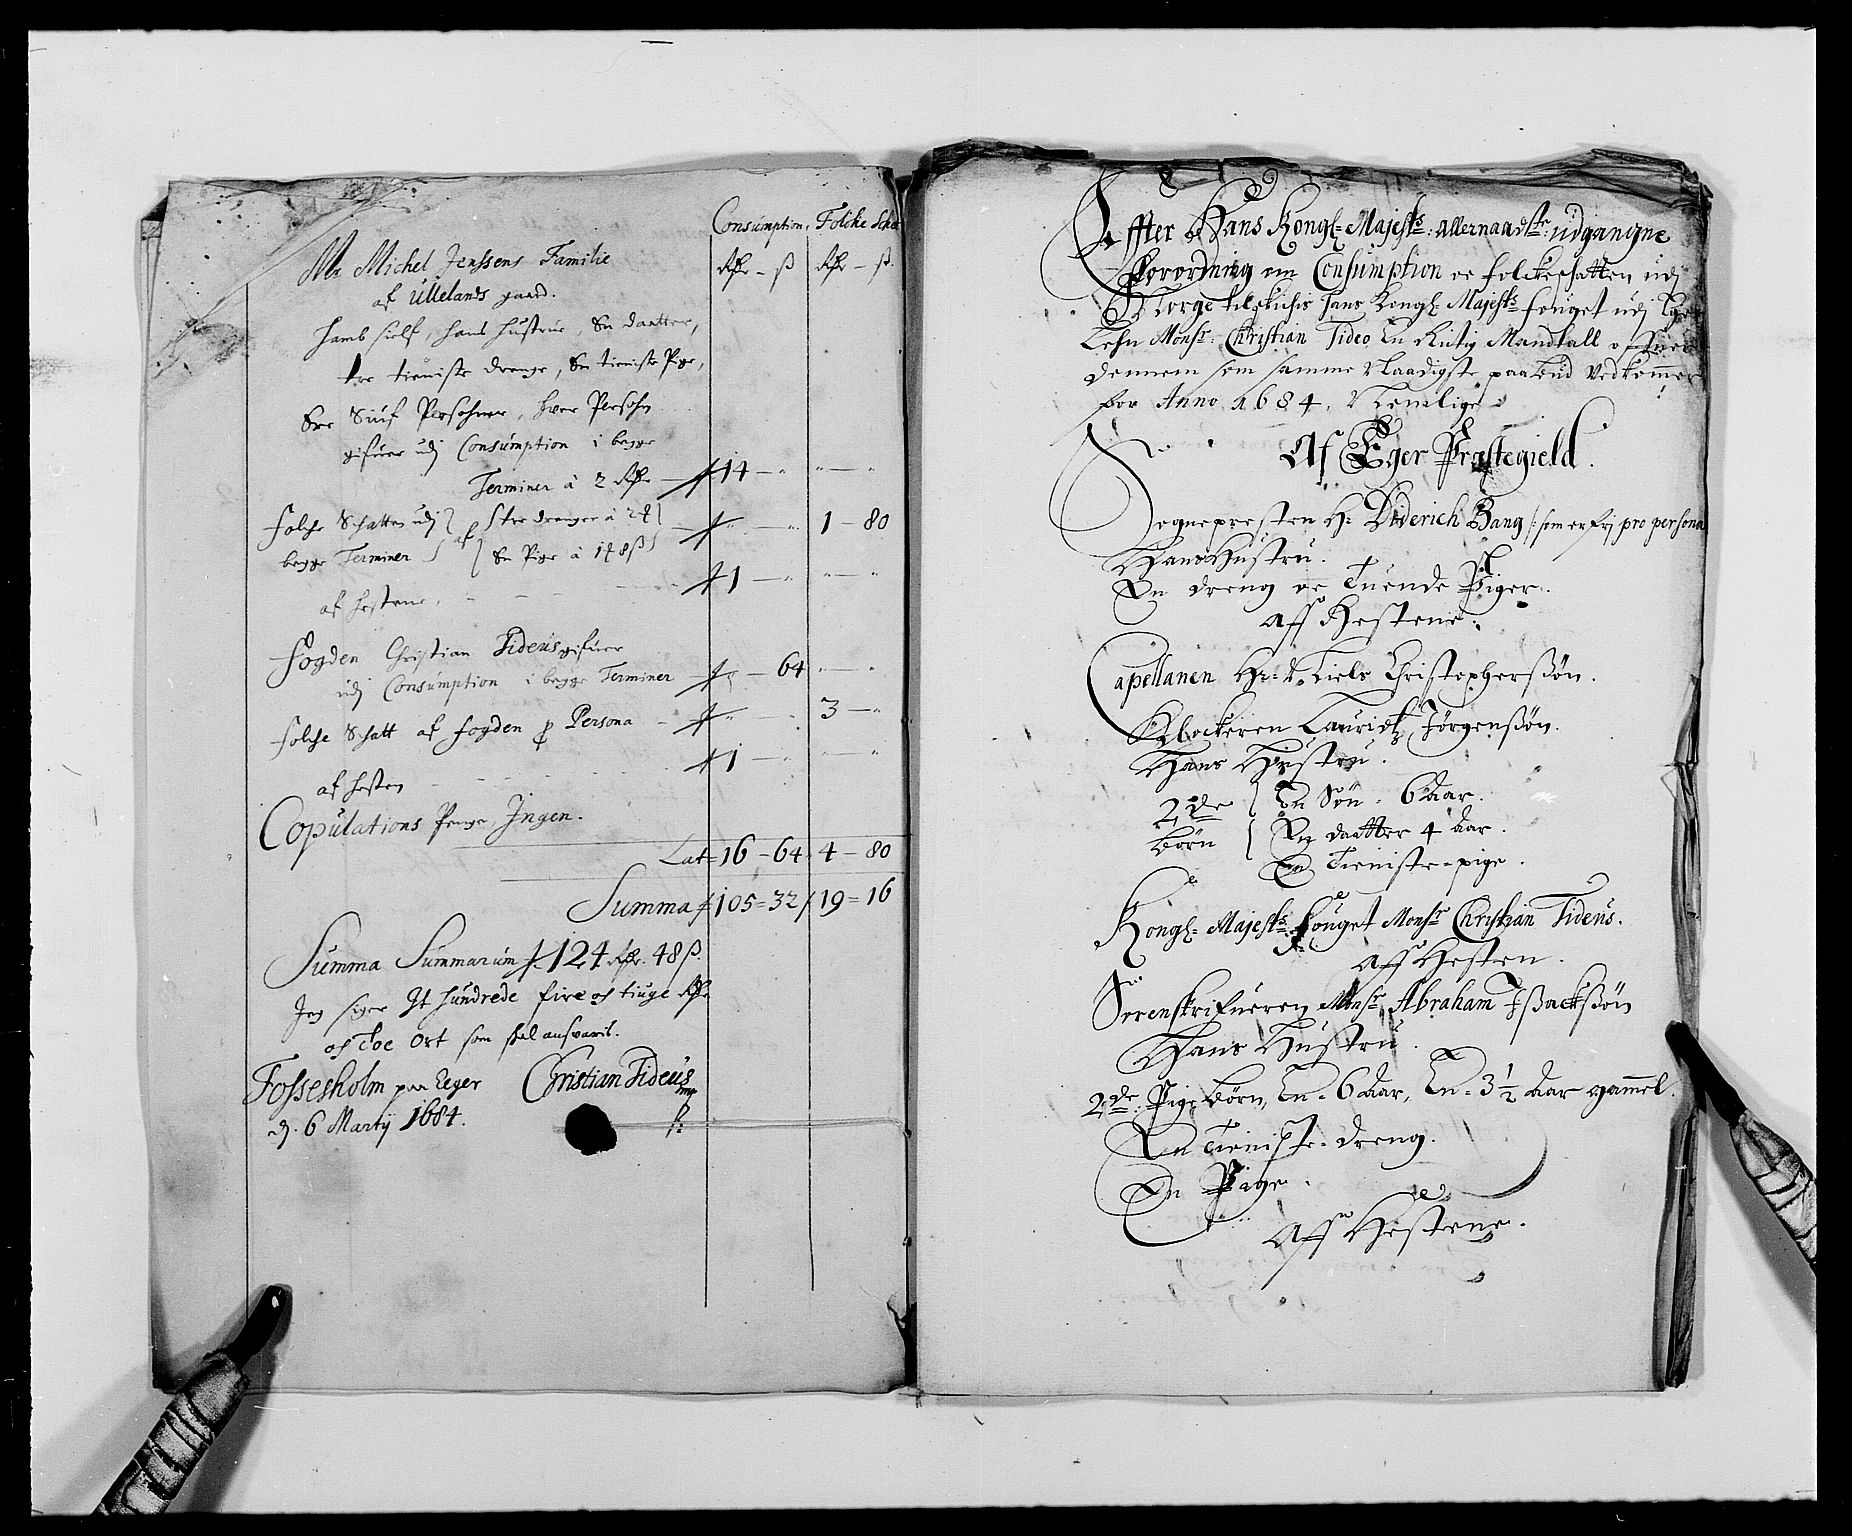 Consumption. Folcke Schat
Rdr - ß Rdr - ß.
Mr Michel Jenssens Familie
af Ullelands gaard.
hamb sielf, hans hustrue, En daatter,
tre tieniste drenge, En tieniste Pige,
Ere Siuf Persohner, hver Persohn
gifuer udj Consumption i begge
Terminer à 2 Rdr — 14 — " " — "
folche Schatten udj af tre drenger à 24
begge Terminer En Pige à 148ß — " — " 1 — 80
af hestene, - - - 1 — " " — "
Fogden Christian Tideus gifuer
udj Consumption i begge Terminer — " — 64 " — "
folche Schatt af fogden p Persona — " — " 3 — "
af hesten - - 1 — " " — "
Copulations Penge, Ingen.
Lat= 16 — 64 4 — 80
Summa 105 = 32 / 19 = 16
Summa Summarum 124 Rdr. 48ß.
Jeg siger It hundrede fire og tiuge Rdr
og Toe Ort som skal ansvaris.
Fossesholm paa Eger Christian Tideus
d. 6 Martij 1684. mp
Effter Hans Kongl= Majestz: allernaadste: udgangne
Forordning om Consumption oc folckeskatten udj
Norge tilskichis hans Kongl Majestz fouget udj Eger
Lehn Monsr: Christian Tideo En Rictig Mandtall offuer
dennem som samme Naadigste paabud vedkommer
for Anno 1684, Nemlige:
Af Eger Præstegield.
Sognepresten Hr Diderich Bang /: som er frj pro persona
Hans Hustru.
En dreng oc Tuende Piger.
Aff Hestene.
Capellanen Hr: Niels Christopherssøn.
Klockeren Lauridtz Jørgenssøn.
Hans Hustru.
2de En Søn - 6 Aar.
børn En daatter 4 aar.
En Tieniste-pige.
Kongl= Majestz fouget Monsr Christian Tideus.
Aff Hesten.
Sorenskrifueren Monsr. Abraham Issackssøn
Hans Hustru.
2de: Pige børn, En - 6 Aar, En - 3 1/2 Aar gammel.
En Tieniste-dreng.
En Pige.
Aff Hestene.